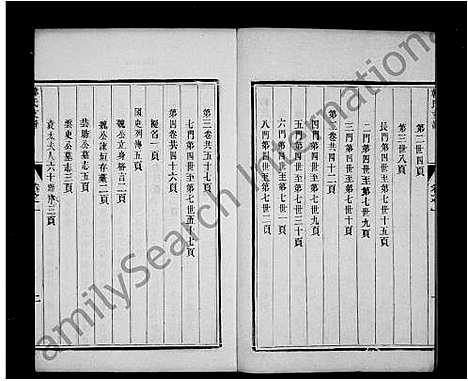 第二世四頁
第三世八頁
長門第四世至第七世七頁
二門第四世至第七世九頁
三門第四世至第七世十頁
第三卷共四十二頁
四門第四世至第七世九頁
五門第四世至第七世三十頁
六門第四世至第七世一頁
八門第四世至第七世二頁
第三卷共五十七頁
七門第四世至第七世五十七頁
第四卷共四十六頁
題名一頁
國史列傳五頁
魏公立身格言二頁
魏公諫垣存藁二頁
獎勵公墓志五頁
太夫人六十壽序三頁
卷之一
二
FamilySearch International